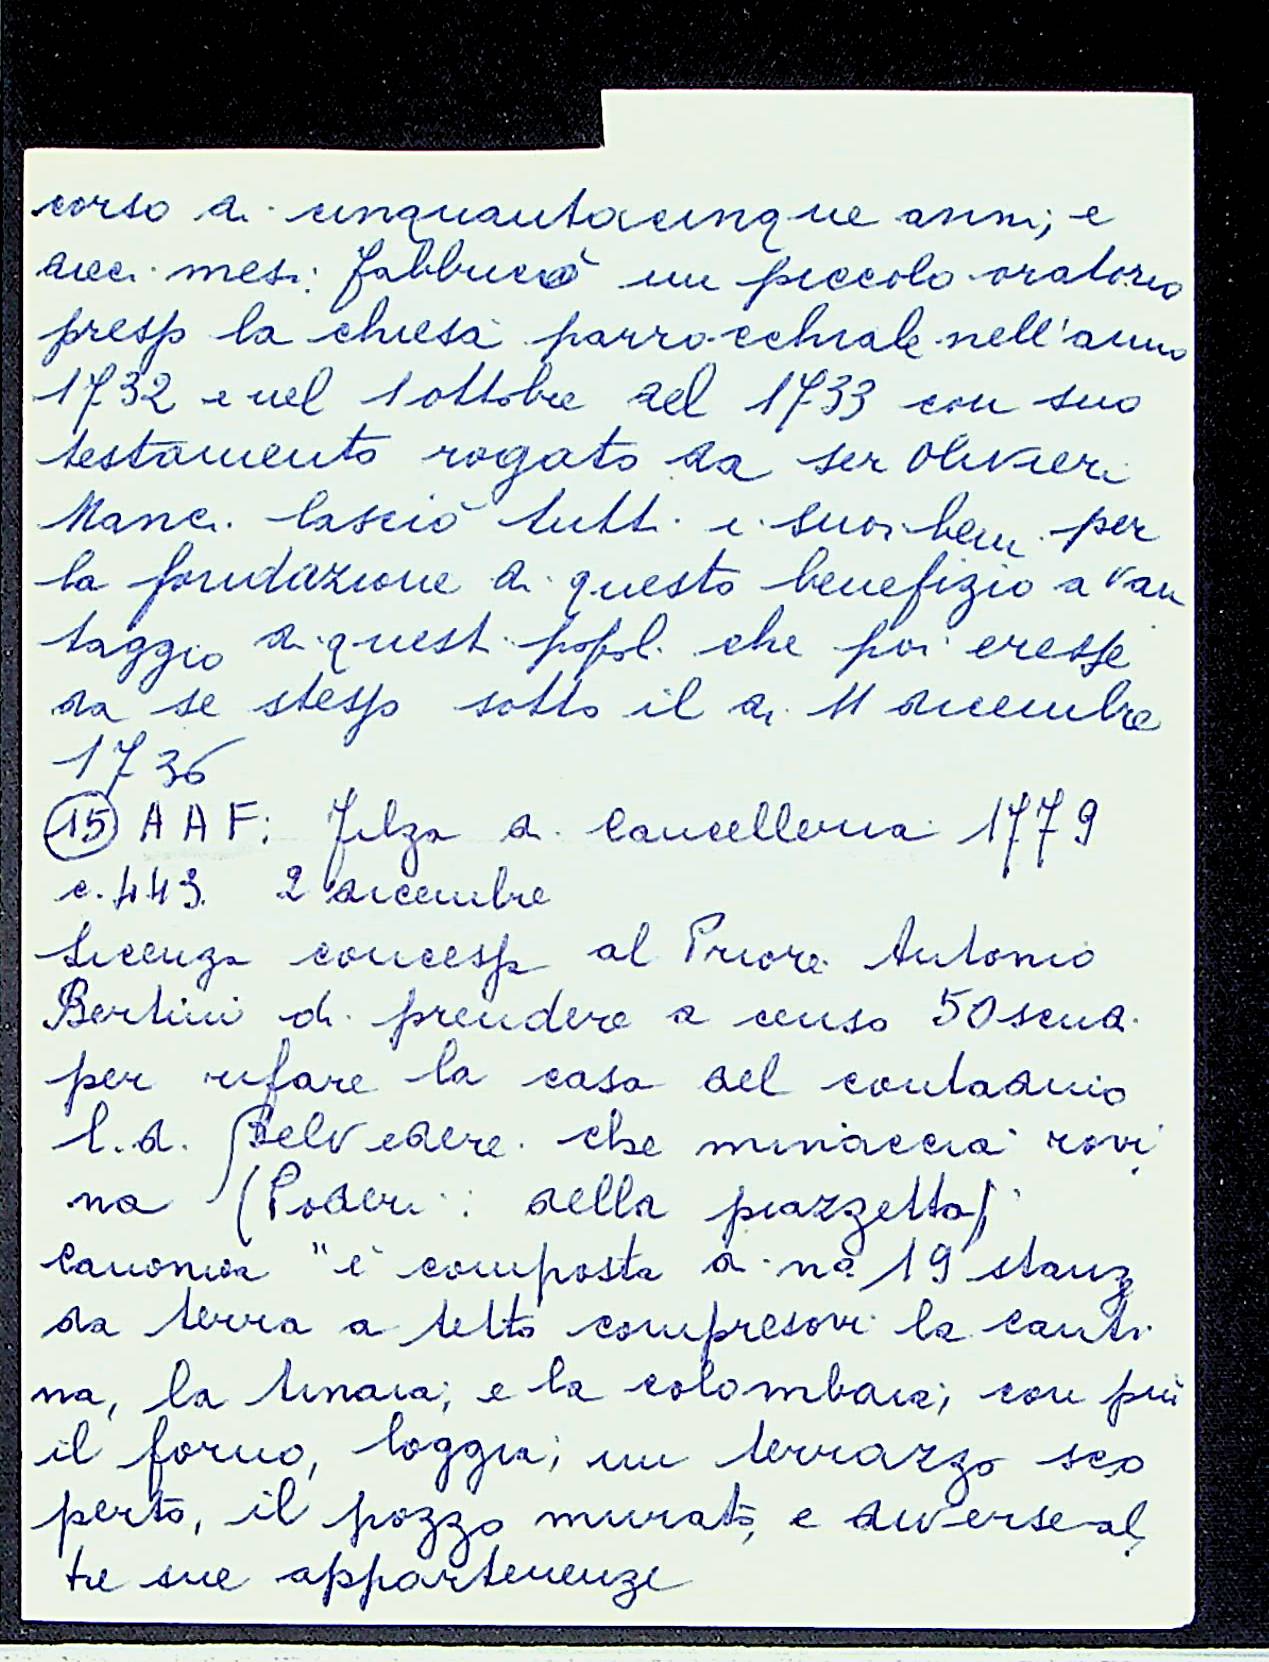 corso di cinquantacinque anni; e
dieci mesi: fabbricò un piccolo oratorio
presso la chiesa parrocchiale nell'anno
1732 e nel 1 ottobre del 1733 con suo
testamento rogato da ser Olivieri
Manci lasciò tutti i suoi beni per
la fondazione di questo benefizio a van
taggio di questi popoli che poi eresse
da se stesso sotto il di 11 dicembre
1736
(15) A A F: Filza di Cancelleria 1779
c. 443. 2 dicembre
Licenza concessa al Priore Antonio
Bertini di prendere a censo 50 scudi
per rifare la casa del contadino
l.d. Belvedere che minaccia rovi
na (Poderi: della piazzetta)
Canonica "è composta di n° 19 stanze
da terra a tetto compresovi la canti
na, la tinaia; e la colombaia; con più
il forno, loggia; un terrazzo sco
perto, il pozzo murato, e diverse al
tre sue appartenenze